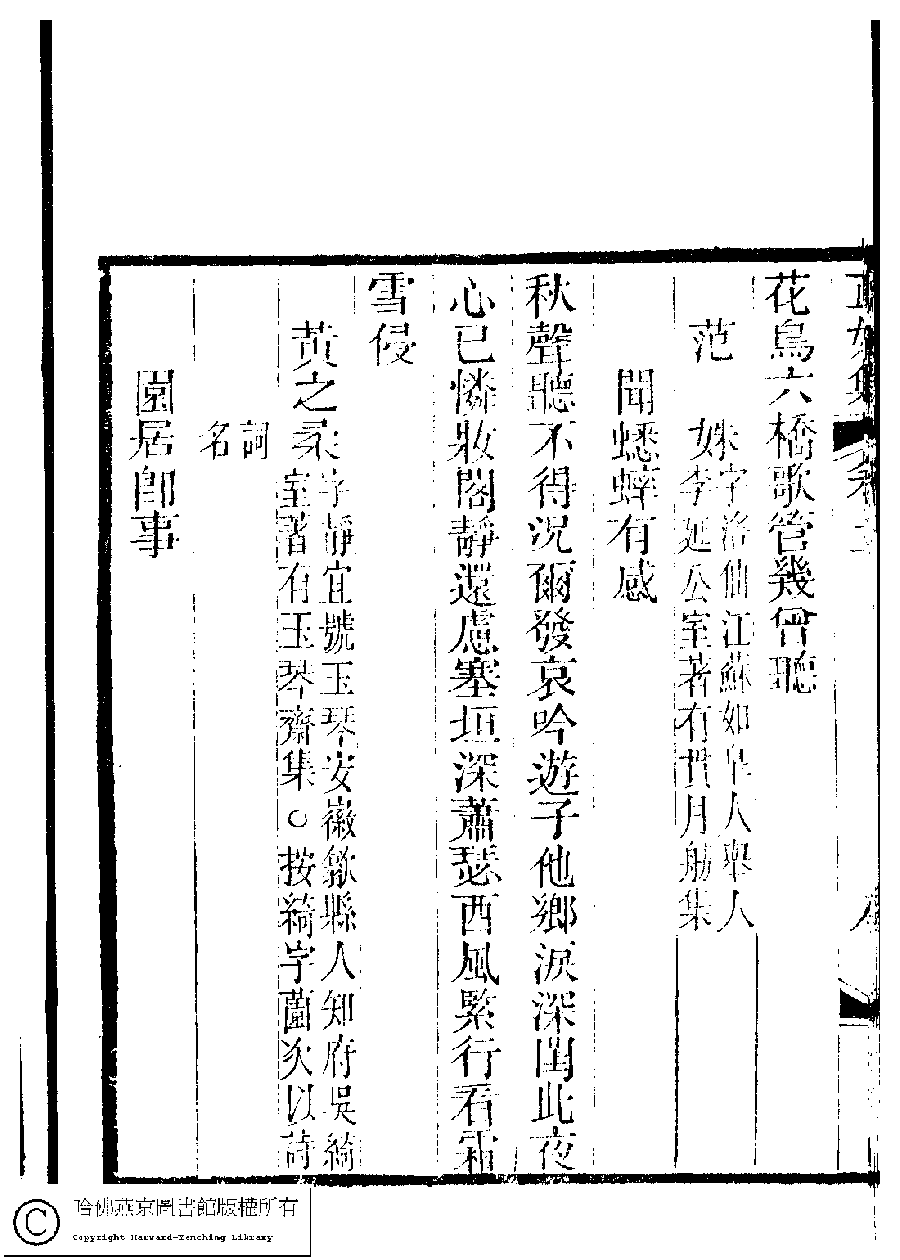 花鳥六橋歌管幾曾聽
范姝字洛仙江蘇如皋人舉人
李延公室著有貫月舫集
聞蟋蟀有感
秋聲聽不得況爾發哀吟遊子他鄉淚深閨此夜
心已憐妝閣靜還慮塞垣深蕭瑟西風緊行看霜
雪侵
黃之柔字靜宜號玉琴安徽歙縣人知府吳綺
室著有玉琴齋集○按綺字薗次以詩
詞
名
園居即事
哈佛燕京圖書館版權所有
Copyright Harvard-Yenching Library